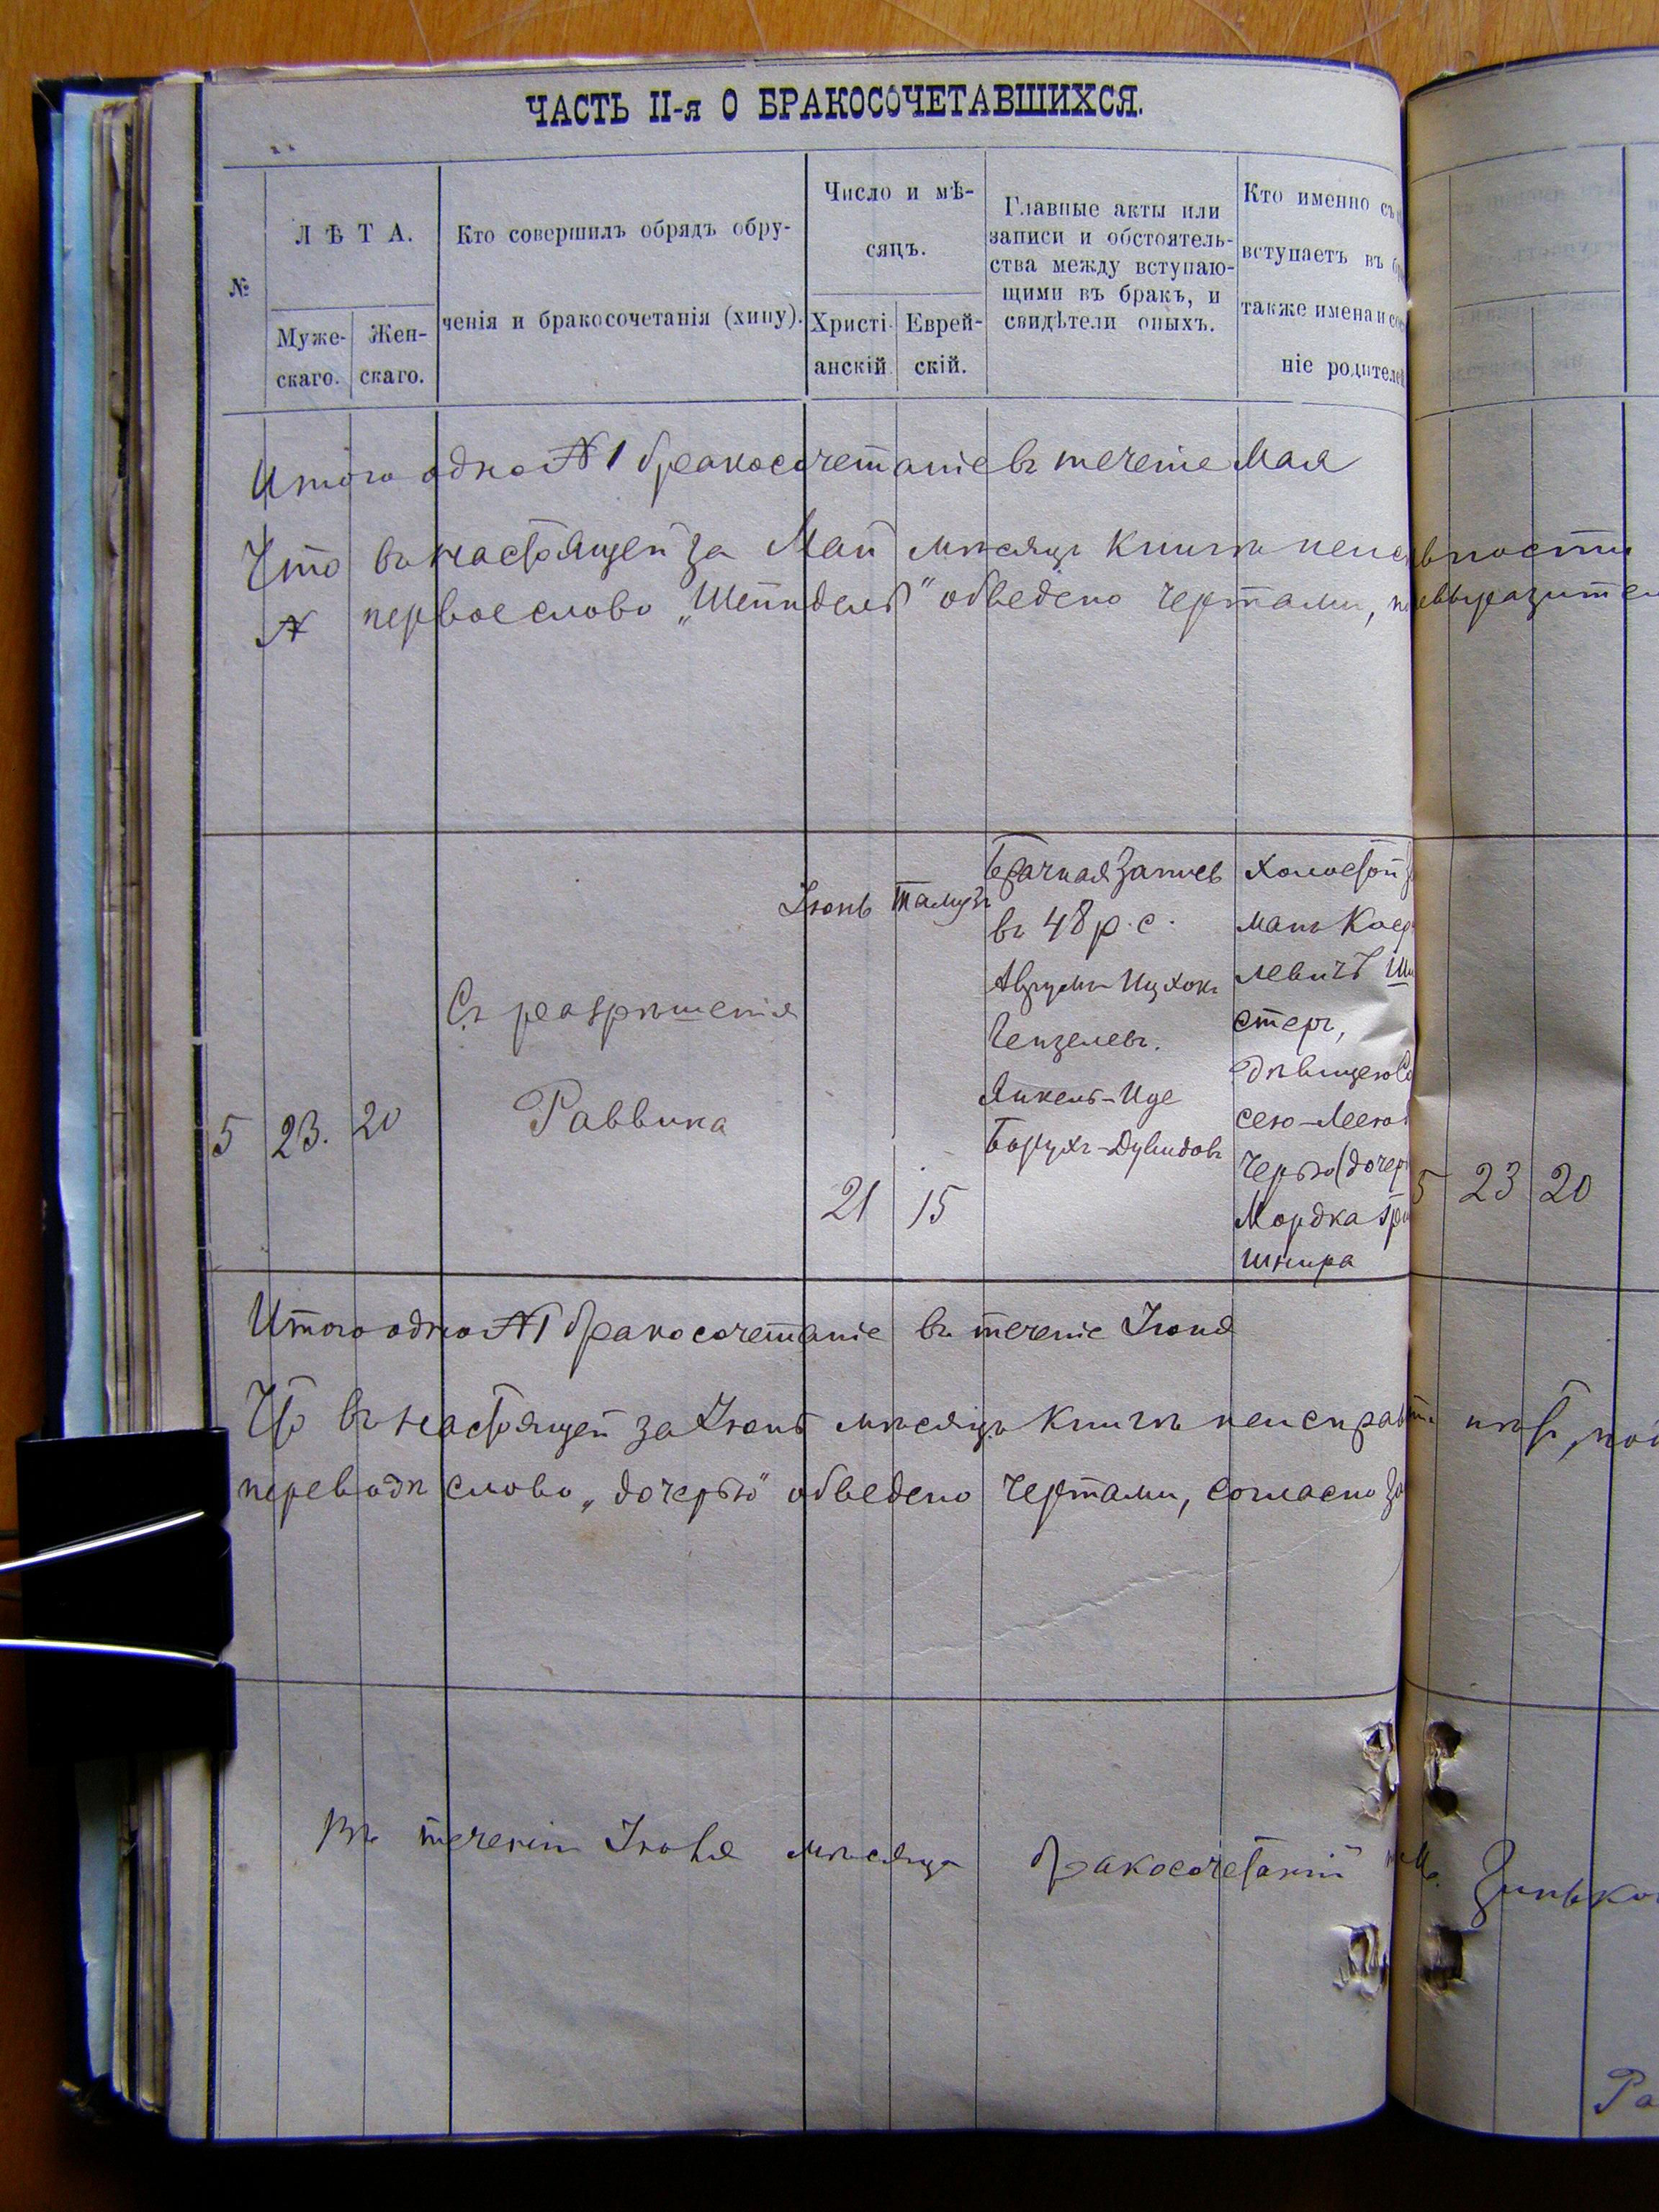 ЧАСТЬ II-я О БРАКОСОЧЕТАВШИХСЯ.
№
ЛѢТА.
Муже-
скаго.
Жен-
скаго.
Кто совершилъ обрядъ обру-
ченія и бракосочетанія (хипу).
Число и мѣ-
сяцъ.
Христі-
анскій
Еврей-
скій.
Главные акты или
записи и обстоятель-
ства между вступаю-
щими въ бракъ, и
свидѣтели оныхъ.
Кто именно съ
вступаетъ въ
также имена и сос
ніе родителе
Итого одно № 1 бракосочетаніе въ теченіе Мая
Что въ настоящей за Май мѣсяцъ книгѣ
№ первое слово „ обведено чертами,
5 23. 20
Съ разрѣшенія
Раввина
Іюнь Тамузъ
21 15
Брачная Запись
въ 48 р. с.
Аврумъ-Ицхокъ
Гензелевъ.
Янкель-Иде
Борухъ-Дувидовъ
Холостой
манъ
левичъ
стеръ,
Дѣвицею
сею-Леею
черью (дочер
Мордка
Шнира
5 23 20
Итого одно № 1 бракосочетаніе въ теченіе Іюня
Что въ настоящей за Іюнь мѣсяцъ книгѣ неисправ
переводѣ слово „дочерью" обведено чертами, согласно
Въ теченіи Іюня мѣсяца бракосочетаній
Ра